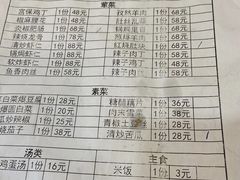 荤菜
宫保鸡丁 1份 48元 孜然羊肉 1份 68元
椒麻腰花 1份 48元 肚丝乱蒜 1份 58元
尖椒肥肠 1份 68元 锅爆里目 1份 58元
辣烧龙骨 1份 78元 红烧羊肉 1份 68元
清炒虾仁 1份 88元 红烧肚块 1份 68元
清焗虾仁 1份 88元 辣子肉丁 1份 58元
软炸虾仁 1份 88元 辣子鸡丁 1份 58元
鱼香肉丝 1份 48元 辣子肉 1份 58元
素菜
白菜爆豆腐 1份 28元 糖醋藕片 1份 36元
爆圆白菜 1份 20元 肉末雪菜 1份 38元
炒辣椒 1份 20元 青椒土豆 1份 28元
烧茄子 1份 38元 清炒苦瓜 1份 28元
汤类 主食
鸡蛋汤 1份 16元 米饭 1份 3元